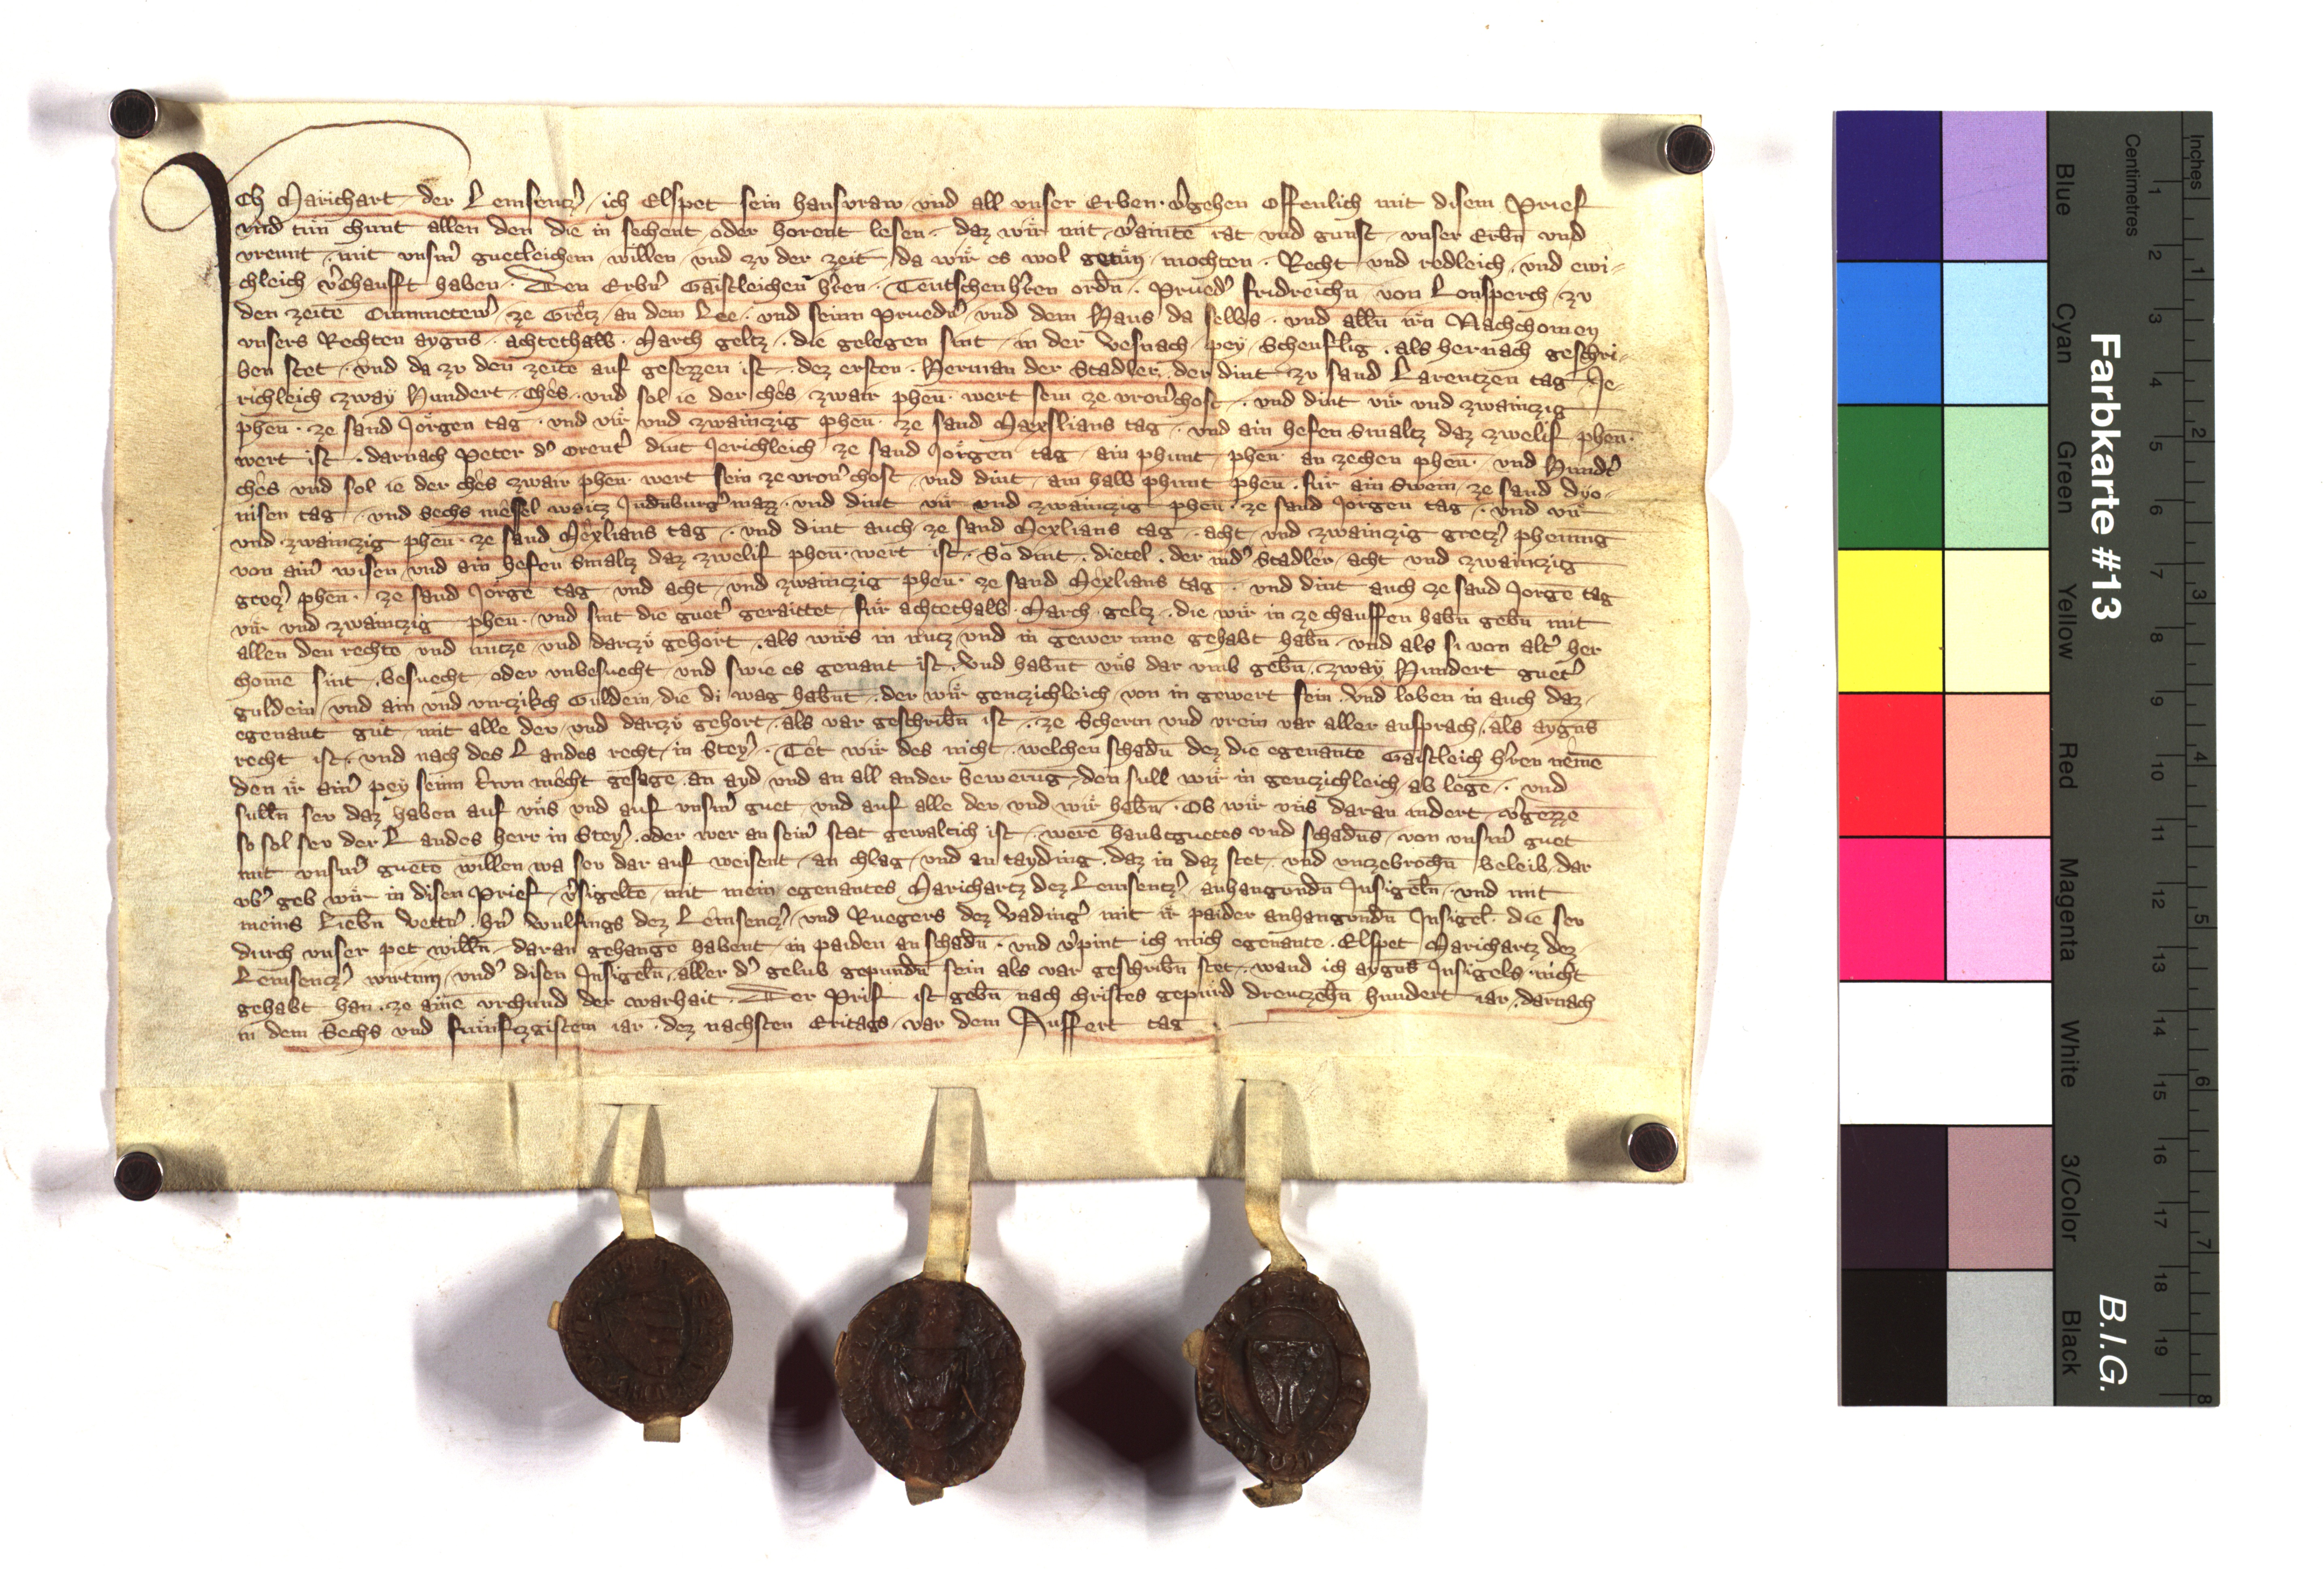 Ich Marichart der Lemsenczˀ ich Elspet sein hausvraw und all unser Erben vˀgehen offenlich mit disem Prief
und tůn chunt allen den die in sechent oder horent lesen daz wir mit vˀaintē rat und gunst unser Erbn̄ und
vreunt mit unsˀm guetleichem willen und zu der zeit da wir es wol getůn mochten Recht und redleich und ewi-
chleich vˀchaufft haben Den Erbˀn Gaistleichen hˀren Teutschenhˀren ordn̄ Pruedˀ fridreichn̄ von Lonsperch zu
den zeitē Cummetewˀ ze Gretz an dem Lee und seinn Pruedˀn und dem Haus da selbs und alln̄ irn̄ Nachchomen
unsers Rechten aygns achtethalb March geltz die gelegen sint in der Vesnach pey Scheuflig als hernach geschri-
ben stet und da zu den zeitē auf gesezzen ist dez ersten Herman der Stadler der dint zu sand Larentzen tag Je-
richleich zway Hundert ches und sol ie der ches zwair phen̄ wert sein ze vronˀchost und dint vir und zwainczig
phen̄ ze sand Jorgen tag und vir und zwainczig phen̄ ze sand Maxslians tag und ain hefen smaltz daz zwelif phen̄
wert ist darnach Peter dˀ Orentˀ dint Jerichleich ze sand Jorgen tag ain phunt phen̄ an zechen phen̄ und Hundtˀ
ches und sol ie der ches zwair phen̄ wert sein ze vronˀchost und dint ain halb phunt phen̄ für ain swein ze sand dyo-
nisen tag und Sechs messel waitz Judnburgˀ mazz und dint vir und zwainczig phen̄ ze sand Jorgen tag und vir
und zwainczig phen̄ ze sand Mexlians tag und dint auch ze sand Mexlians tag acht und zwainczig gretzˀ phening
von ainˀ wisen und ain hefen smaltz daz zwelif phen̄ wert ist So dint dietel der nidˀ Stadler acht und zwainczig
gretzˀ phen̄ ze sand Jorgē tag und acht und zwainczig phen̄ ze sand Mexlians tag und dint auch ze sand Jorgē tag
vir und zwainczig phen̄ und sint die guetˀ geraittet für achtethalb March geltz die wir in ze chauffen habn̄ gebn̄ mit
allen den rechtē und nutzē und darczů gehort als wirs in nutz und in gewer inne gehabt habn̄ und als si von altˀ her
chomē sint besuecht oder unbesuecht und swie es genant ist Und habn̄t uns dar umb gebn̄ zway Hundert guetˀ
guldein und ain und virczikch Guldein die di wag habn̄t der wir genczichleich von in gewert sein Und loben in auch daz
egenant gut mit alle der und darczů gehort als var geschribn̄ ist ze Scherm und vrein var aller ansprach als aygns
recht ist und nach des Landes recht in Steyˀ Tet wir des nicht welchen schadn̄ dez die egenantē Gaistleich hˀren nemē
den ir ainˀ pey seinn trwn mecht gesagē an ayd und an all ander bewerūg den sull wir in genczichleich ab legē und
sulln̄ sev daz haben auf uns und auf unsˀm guet und auf alle der und wir habn̄ Ob wir uns daran indert vˀgezzē
so sol sev der Landes herr in Steyˀ oder wer an seinˀ stat gewaltich ist werē haubtguetes und schadn̄s von unsˀm guet
mit unsˀm guetē willen wa sev dar auf weisent an chlag und an tayding daz in daz stet und unczebrochn̄ beleib dar
ubˀ geb wir in disen Prief vˀsigeltē mit mein egenantes Marichartz dez Lemsentzˀ anhangundn̄ Insigeln̄ und mit
meins Liebn̄ vettˀn hˀn Wulfings dez Lemsenczˀ und Ruegers dez Vadingˀ mit ir paider anhangundn̄ Insigel die sev
durch unser pet willn̄ daran gehangē habent in paiden an schadn̄ und vˀpint ich mich egenante Elspet Marichartz dez
Lemsenczˀ wirtinn undˀ disen Insigeln̄ aller dˀ gelub gepundn̄ sein als var geschribn̄ stet wand ich aygens Insigels nicht
gehabt han ze ainē urchund der warhait Der Prif ist gebn̄ nach christes gepurd dreuczehn̄ hundert iar darnach
in dem Sechs und funfczgistem iar dez nachsten Eritags var dem Auffert tag
Farbkarte #13
B.I.G.
Blue Cyan Green Yellow Red Magenta White 3/Color Black
Centimetres
1 2 3 4 5 6 7 8 9 10 11 12 13 14 15 16 17 18 19
Inches
1 2 3 4 5 6 7 8